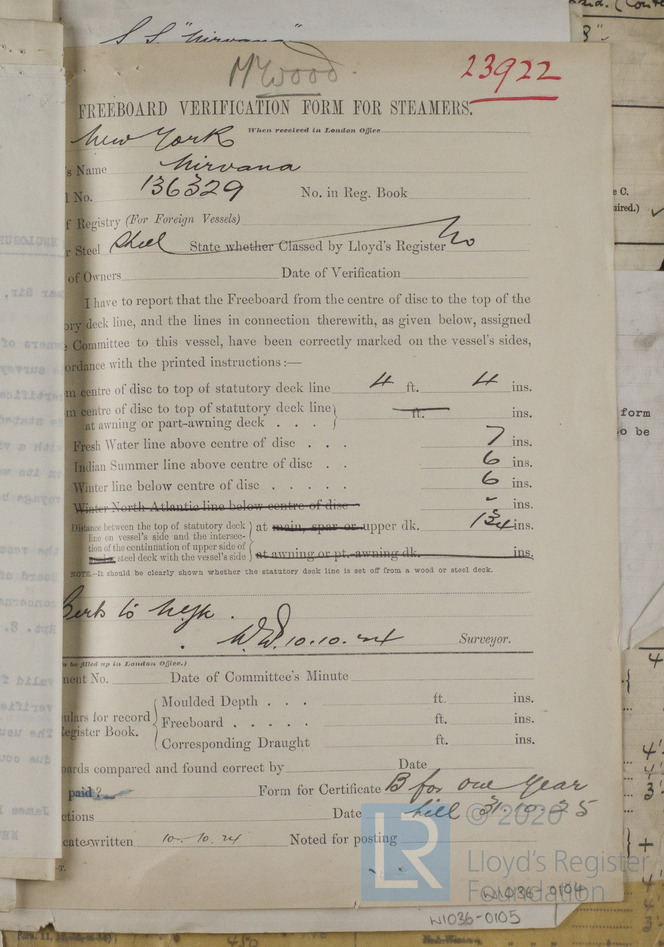 S.S. "Nirvana"
M Wood.
23922
FREEBOARD VERIFICATION FORM FOR STEAMERS.
New York
When received in London Office
's Name Nirvana
l No. 136329 No. in Reg. Book
f Registry (For Foreign Vessels)
r Steel Steel State whether Classed by Lloyd's Register No
of Owners Date of Verification
I have to report that the Freeboard from the centre of disc to the top of the
ory deck line, and the lines in connection therewith, as given below, assigned
e Committee to this vessel, have been correctly marked on the vessel's sides,
ordance with the printed instructions:—
m centre of disc to top of statutory deck line 4 ft. 4 ins.
m centre of disc to top of statutory deck line
at awning or part-awning deck . . . ft. ins.
Fresh Water line above centre of disc . . . 7 ins.
Indian Summer line above centre of disc . . 6 ins.
Winter line below centre of disc . . . . . 6 ins.
Winter North Atlantic line below centre of disc - ins.
Distance between the top of statutory deck
line on vessel's side and the intersec-
tion of the continuation of upper side of
steel deck with the vessel's side
at main, spar or upper dk. 1¾ ins.
at awning or pt.-awning dk. ins.
NOTE.—It should be clearly shown whether the statutory deck line is set off from a wood or steel deck.
to
10.10.24 Surveyor.
o be filled up in London Office.)
ment No. Date of Committee's Minute
ulars for record
Register Book.
Moulded Depth . . . ft. ins.
Freeboard . . . . . ft. ins.
Corresponding Draught ft. ins.
oards compared and found correct by Date
paid? Form for Certificate B for one Year
ctions Date till 31.10.25
cate written 10.10.24 Noted for posting
LR © 2020
Lloyd's Register
Foundation
W1036-0104
W1036-0105
form
o be